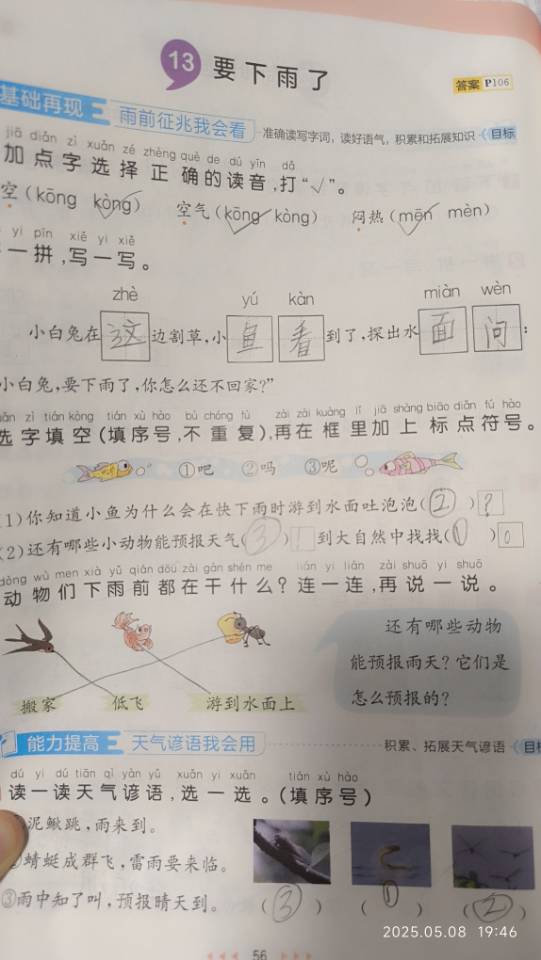 13 要下雨了
答案 P106
基础再现 雨前征兆我会看 准确读写字词，读好语气，积累和拓展知识 目标
jiā diǎn zì xuǎn zé zhèng què de dú yīn dǎ
加点字选择正确的读音，打“√”。
空（kōng kòng） 空气（kōng kòng） 闷热（mēn mèn）
yi pīn xiě yi xiě
一拼，写一写。
zhè yú kàn miàn wèn
小白兔在这边割草，小鱼看到了，探出水面问：
小白兔，要下雨了，你怎么还不回家？”
zì tián kòng tián xù hào bù chóng fù zài zài kuàng lǐ jiā shàng biāo diǎn fú hào
选字填空（填序号，不重复），再在框里加上标点符号。
①吧 ②吗 ③呢
(1)你知道小鱼为什么会在快下雨时游到水面吐泡泡（②）？
(2)还有哪些小动物能预报天气（③） 到大自然中找找（①）。
dòng wù men xià yǔ qián dōu zài gàn shén me lián yi lián zài shuō yi shuō
动物们下雨前都在干什么？连一连，再说一说。
还有哪些动物
能预报雨天？它们是
怎么预报的？
搬家 低飞 游到水面上
能力提高 天气谚语我会用 积累、拓展天气谚语 目标
dú yi dú tiān qì yàn yǔ xuǎn yi xuǎn tián xù hào
读一读天气谚语，选一选。（填序号）
泥鳅跳，雨来到。
蜻蜓成群飞，雷雨要来临。
③雨中知了叫，预报晴天到。
（③） （①） （②）
56
2025.05.08 19:46